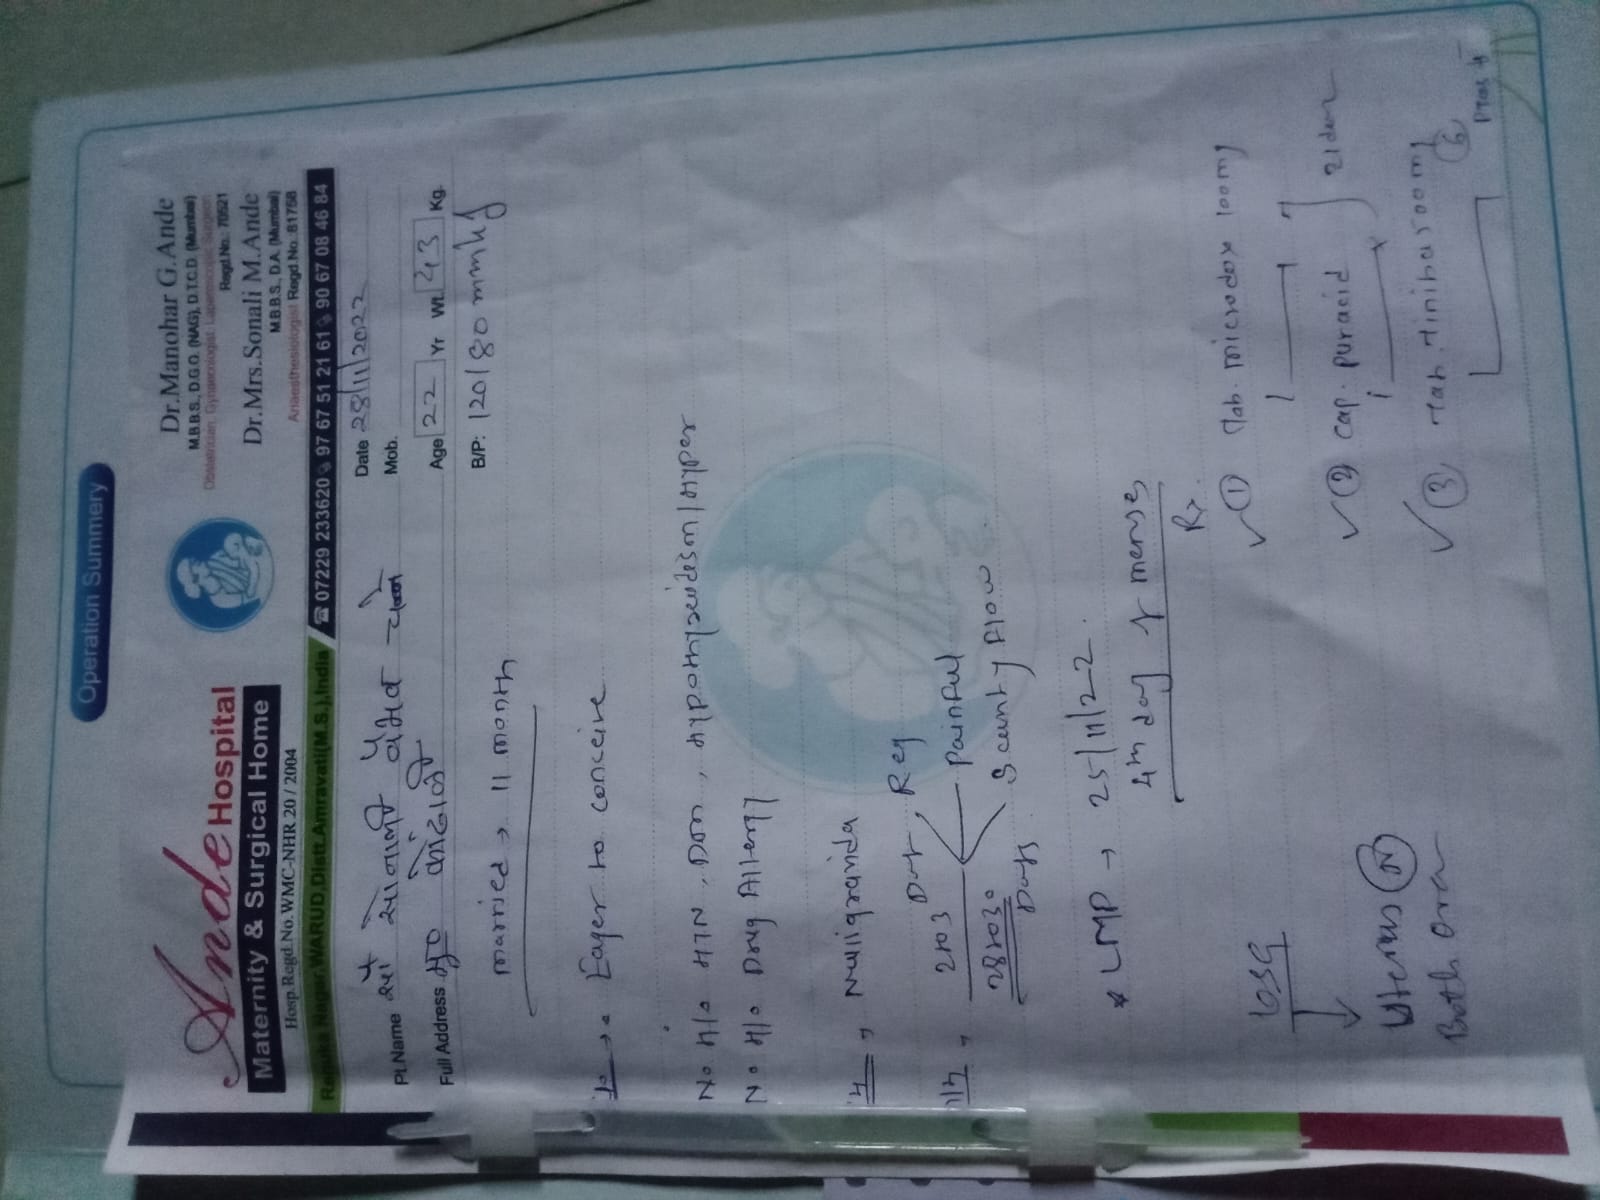 Operation Summery
Ande Hospital
Maternity & Surgical Home
Hosp.Regd.No.WMC-NHR 20 / 2004
Dr.Manohar G.Ande
M.B.B.S., D.G.O. (NAG), D.T.C.D. (Mumbai)
Obstetrician, Gynaecologist, Laparoscopic Surgeon
Regd.No.: 70521
Dr.Mrs.Sonali M.Ande
M.B.B.S., D.A. (Mumbai)
Anaesthesiologist Regd.No.:81758
Nagar,WARUD,Distt.Amravati(M.S.),India
☎07229 233620 97 67 51 21 61 90 67 08 46 84
Pt.Name सौ
Date 28/11/2022
Mob.
Full Address मु०
Age 22 Yr Wt. 43 Kg.
B/P: 120/80 mmhg
married → 11 month
Eager to concive
No H/o HTN, Dm, Hypothyroidism/Hyper
No H/o Drug Allergy
Nulligravida
2to3 Day, Reg
28to30 Days
Painful
Scanty Flow
* LMP → 25/11/22.
4th day of menses
Rx.
① Tab. microdox 100mg
② cap. puracid
21 days
③ Tab. Tiniba 500mg
⑥
USG
Uterus Ⓝ
Both ovar